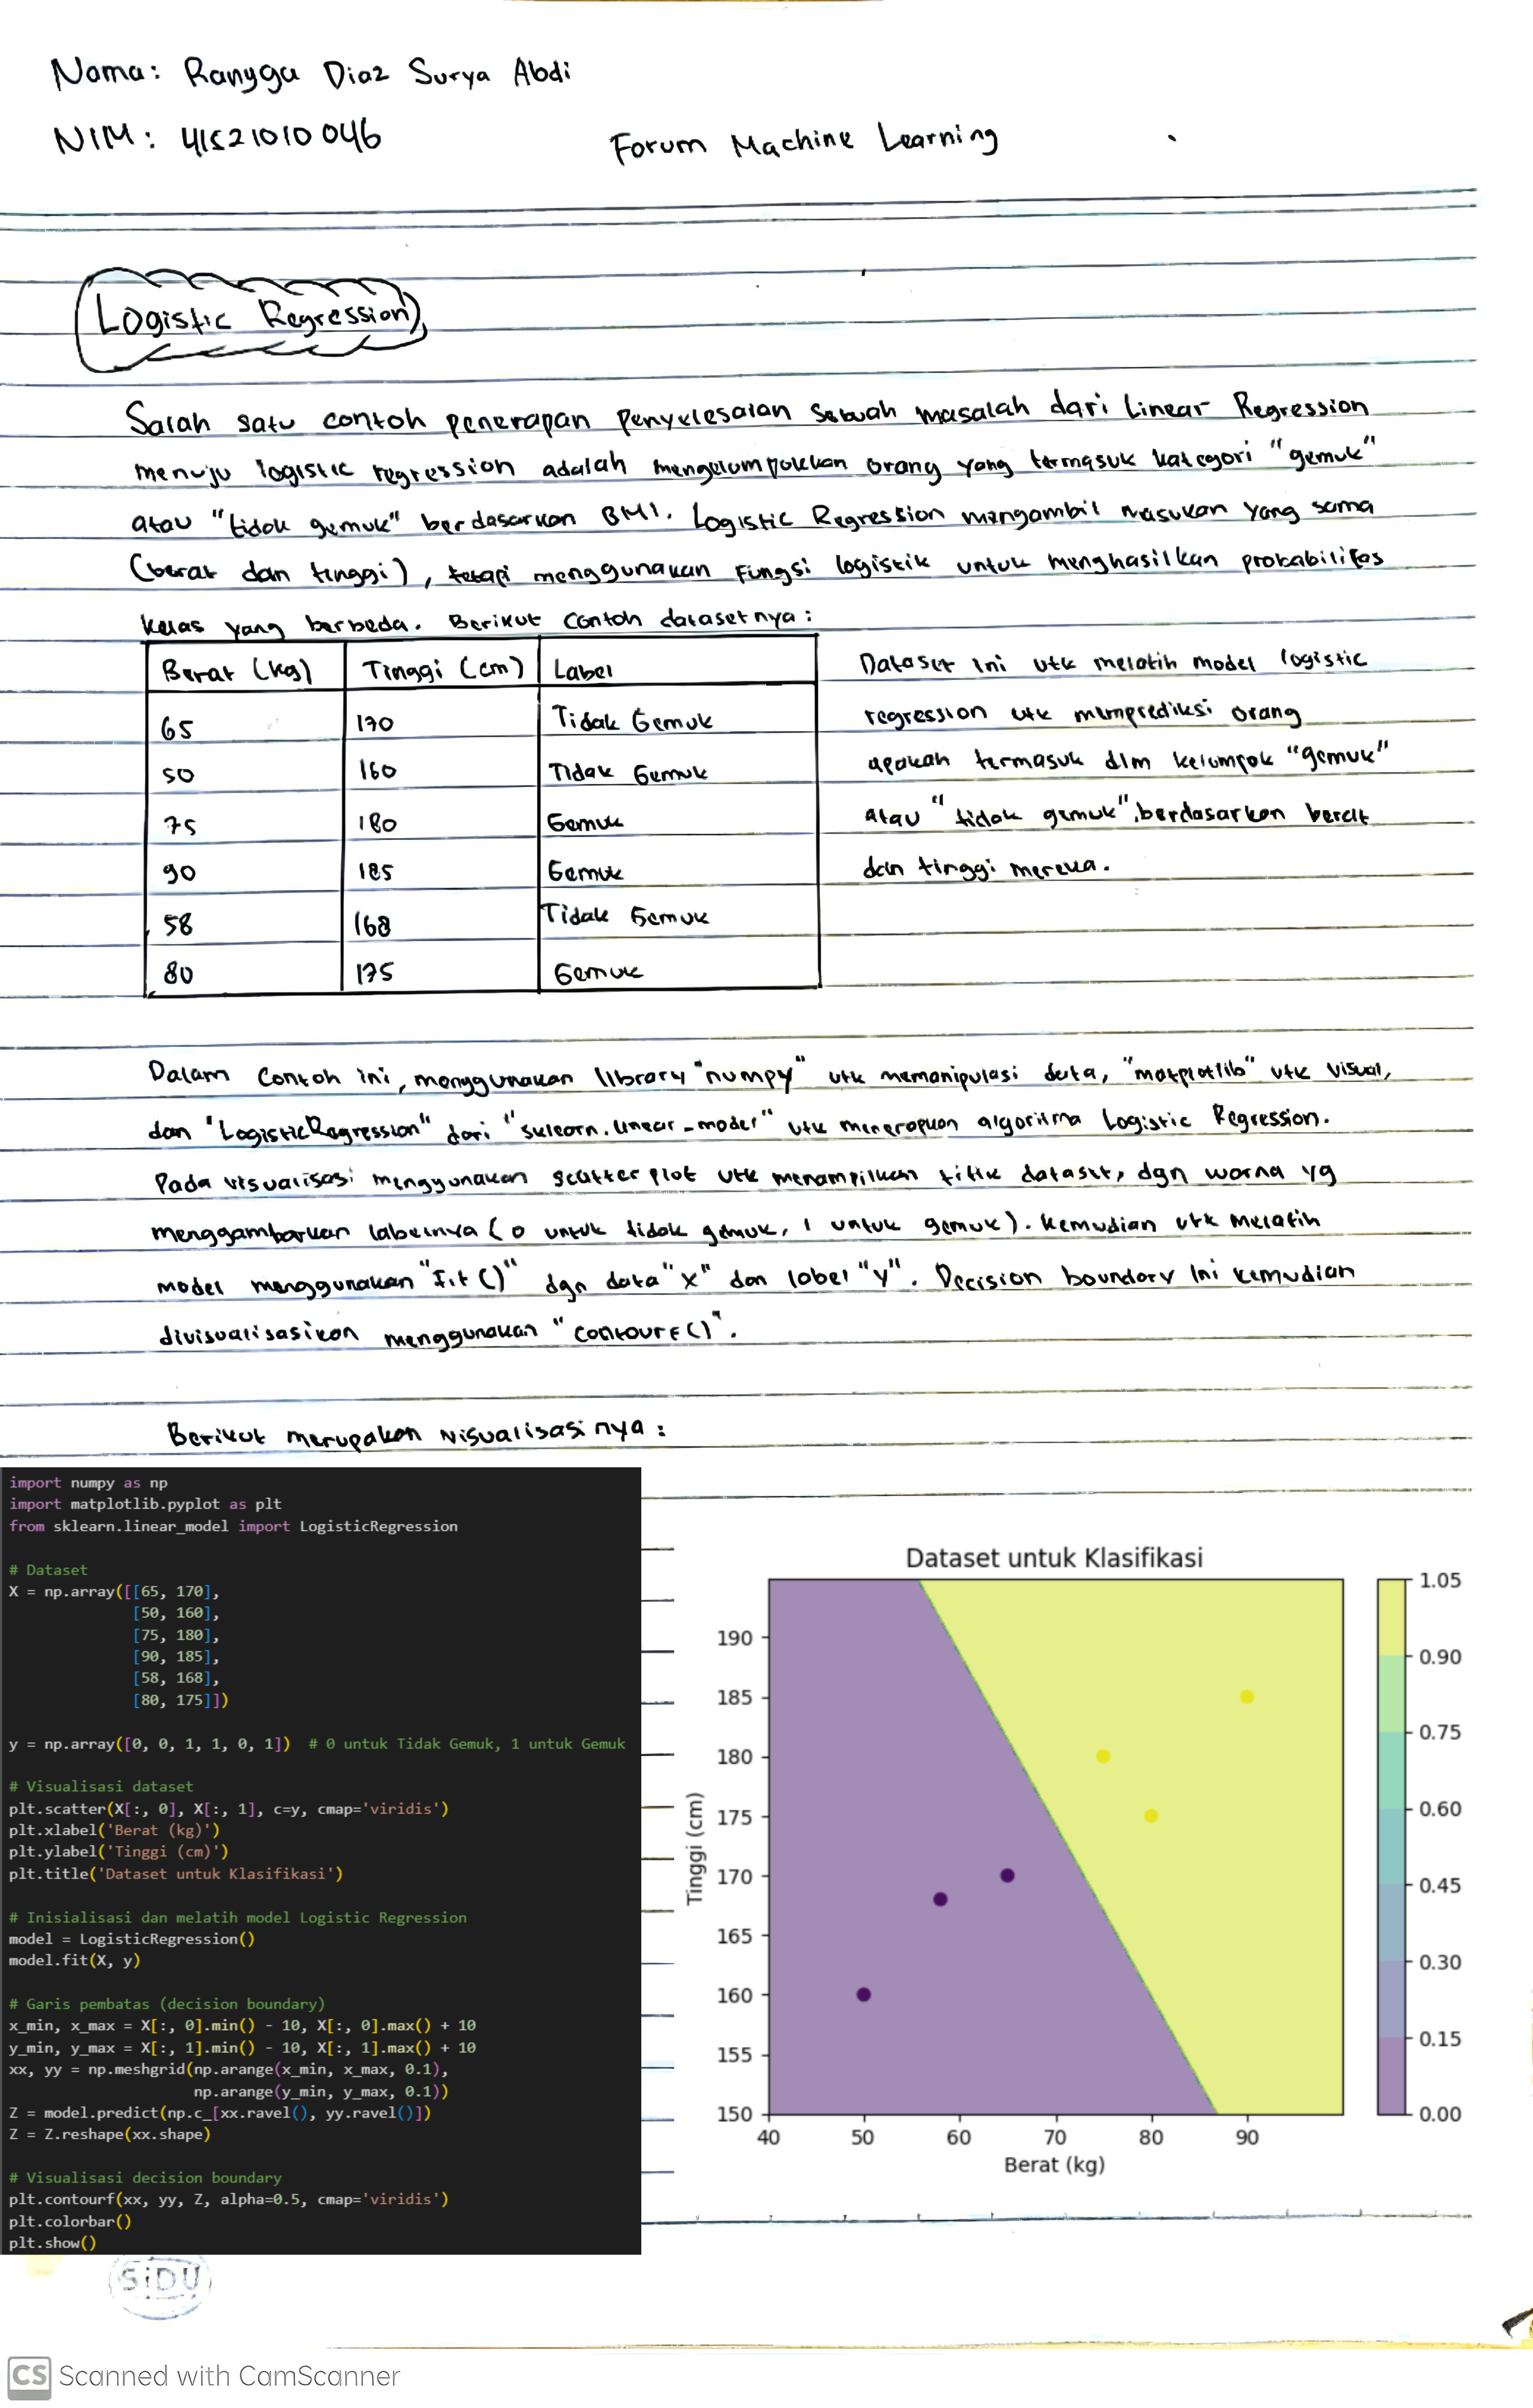 Nama: Rangga Diaz Surya Abdi
NIM: 41521010046
Forum Machine Learning
Logistic Regression
Salah satu contoh penerapan penyelesaian sebuah masalah dari Linear Regression
menuju logistic regression adalah mengelompokkan orang yang termasuk kategori "gemuk"
atau "tidak gemuk" berdasarkan BMI. Logistic Regression mengambil masukan yang sama
(berat dan tinggi), tetapi menggunakan fungsi logistik untuk menghasilkan probabilitas
kelas yang berbeda. Berikut contoh datasetnya:
Berat (kg) Tinggi (cm) Label
65 170 Tidak Gemuk
50 160 Tidak Gemuk
75 180 Gemuk
90 185 Gemuk
58 168 Tidak Gemuk
80 175 Gemuk
Dataset ini utk melatih model logistic
regression utk memprediksi orang
apakah termasuk dlm kelompok "gemuk"
atau "tidak gemuk", berdasarkan berat
dan tinggi mereka.
Dalam contoh ini, menggunakan library "numpy" utk memanipulasi data, "matplotlib" utk visual,
dan "LogisticRegression" dari "sklearn.linear_model" utk menerapkan algoritma Logistic Regression.
Pada visualisasi menggunakan scatter plot utk menampilkan titik dataset, dgn warna yg
menggambarkan labelnya (0 untuk tidak gemuk, 1 untuk gemuk). Kemudian utk melatih
model menggunakan "fit()" dgn data "x" dan label "y". Decision boundary ini kemudian
divisualisasikan menggunakan "contourf()".
Berikut merupakan visualisasinya:
import numpy as np
import matplotlib.pyplot as plt
from sklearn.linear_model import LogisticRegression
# Dataset
X = np.array([[65, 170],
[50, 160],
[75, 180],
[90, 185],
[58, 168],
[80, 175]])
y = np.array([0, 0, 1, 1, 0, 1]) # 0 untuk Tidak Gemuk, 1 untuk Gemuk
# Visualisasi dataset
plt.scatter(X[:, 0], X[:, 1], c=y, cmap='viridis')
plt.xlabel('Berat (kg)')
plt.ylabel('Tinggi (cm)')
plt.title('Dataset untuk Klasifikasi')
# Inisialisasi dan melatih model Logistic Regression
model = LogisticRegression()
model.fit(X, y)
# Garis pembatas (decision boundary)
x_min, x_max = X[:, 0].min() - 10, X[:, 0].max() + 10
y_min, y_max = X[:, 1].min() - 10, X[:, 1].max() + 10
xx, yy = np.meshgrid(np.arange(x_min, x_max, 0.1),
np.arange(y_min, y_max, 0.1))
Z = model.predict(np.c_[xx.ravel(), yy.ravel()])
Z = Z.reshape(xx.shape)
# Visualisasi decision boundary
plt.contourf(xx, yy, Z, alpha=0.5, cmap='viridis')
plt.colorbar()
plt.show()
Dataset untuk Klasifikasi
Tinggi (cm)
190
185
180
175
170
165
160
155
150
40 50 60 70 80 90
Berat (kg)
1.05
0.90
0.75
0.60
0.45
0.30
0.15
0.00
SiDU
CS Scanned with CamScanner